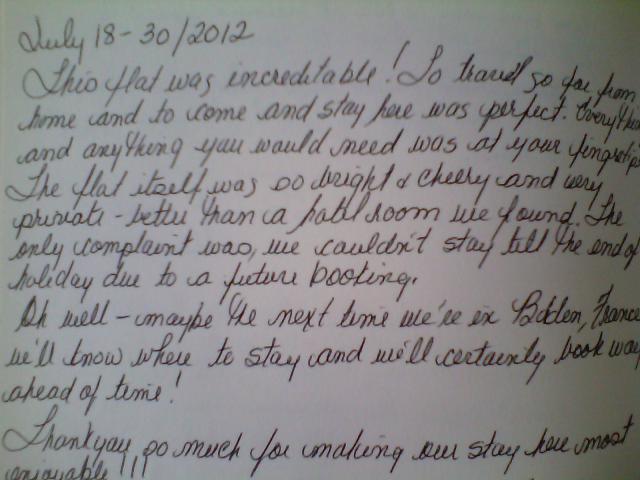 July 18-30/2012
This flat was increditable! To travel so far from
home and to come and stay here was perfect. Everything
and anything you would need was at your fingertips
The flat itself was so bright & cheery and very
private - better than a hotel room we found. The
only complaint was, we couldn't stay till the end of
holiday due to a future booking.
Oh well - maybe the next time we're in France
we'll know where to stay and we'll certainly book way
ahead of time!
Thankyou so much for making our stay here most
enjoyable!!!